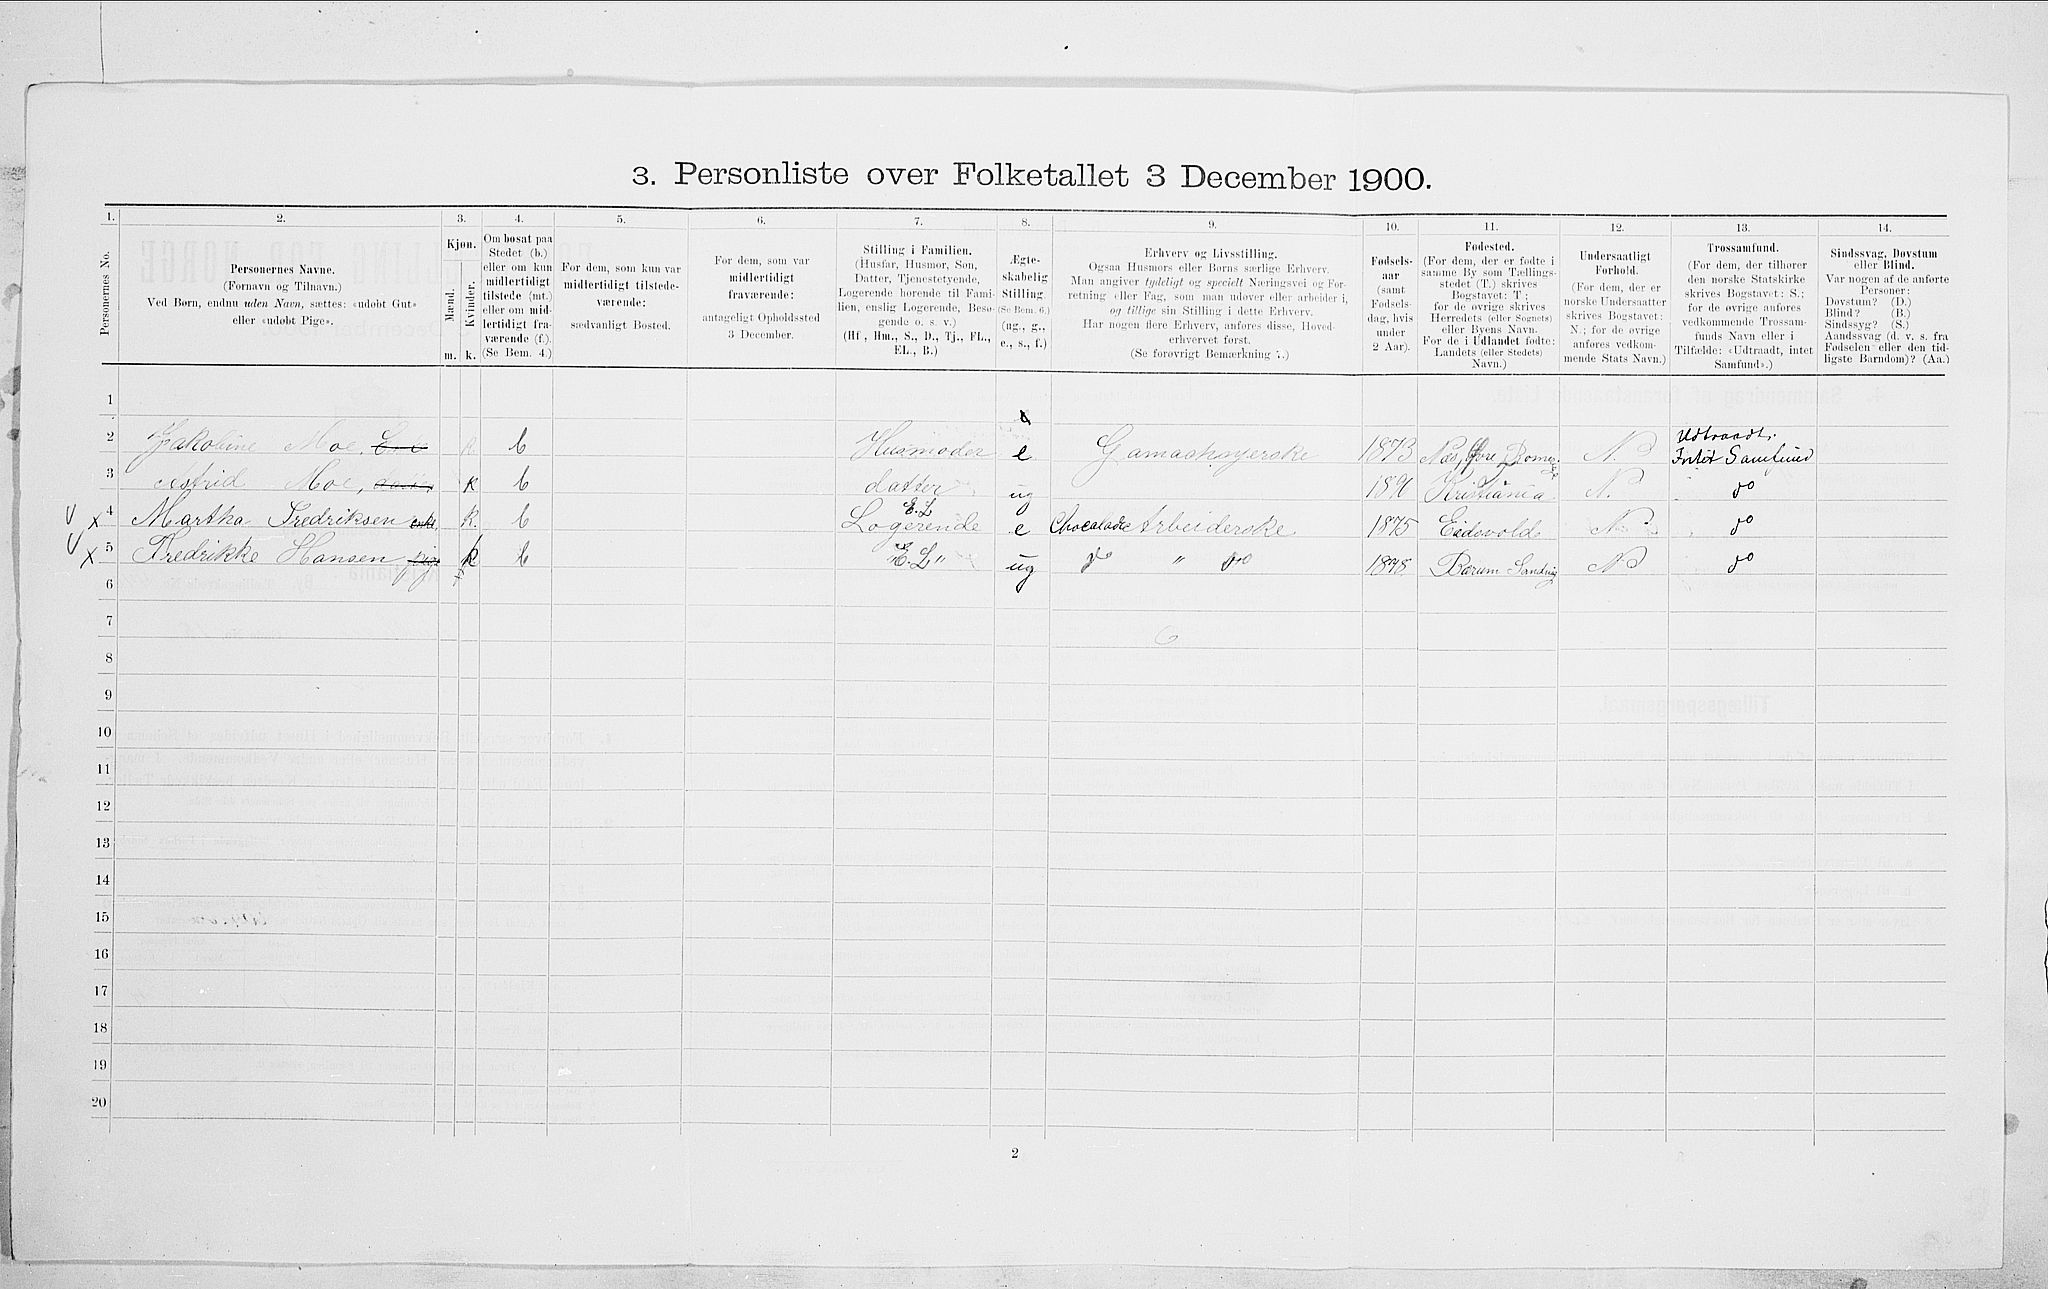 3. Personliste over Folketallet 3 December 1900.
1. 2. 3. 4. 5. 6. 7. 8. 9. 10. 11. 12. 13. 14.
Personernes No.
Personernes Navne.
(Fornavn og Tilnavn.)
Ved Børn, endnu uden Navn, sættes: «udøbt Gut»
eller «udøbt Pige».
Kjøn.
Mænd.
Kvinder.
m. k.
Om bosat paa
Stedet (b.)
eller om kun
midlertidigt
tilstede (mt.)
eller om mid-
lertidigt fra-
værende (f.).
(Se Bem. 4.)
For dem, som kun var
midlertidigt tilstede-
værende:
sædvanligt Bosted.
For dem, som var
midlertidigt
fraværende:
antageligt Opholdssted
3 December.
Stilling i Familien.
(Husfar, Husmor, Søn,
Datter, Tjenestetyende,
Logerende hørende til Fami-
lien, enslig Logerende, Besø-
gende o. s. v.)
(Hf., Hm., S., D., Tj., FL.,
EL., B.)
Ægte-
skabelig
Stilling.
(Se Bem. 6.)
(ug., g.,
e., s., f.)
Erhverv og Livsstilling.
Ogsaa Husmors eller Børns særlige Erhverv.
Man angiver tydeligt og specielt Næringsvei og For-
retning eller Fag, som man udøver eller arbeider i,
og tillige sin Stilling i dette Erhverv.
Har nogen flere Erhverv, anføres disse, Hoved-
erhvervet først.
(Se forøvrigt Bemærkning 7.)
Fødsels-
aar
(samt
Fødsels-
dag, hvis
under
2 Aar).
Fødested.
(For dem, der er fødte i
samme By som Tællings-
stedet (T.) skrives
Bogstavet: T;
for de øvrige skrives
Herredets (eller Sognets)
eller Byens Navn.
For de i Udlandet fødte:
Landets (eller Stedets)
Navn.)
Undersaatligt
Forhold.
(For dem, der er
norske Undersaatter
skrives Bogstavet:
N.; for de øvrige
anføres vedkom-
mende Stats Navn.)
Trossamfund.
(For dem, der tilhører
den norske Statskirke
skrives Bogstavet: S.;
for de øvrige anføres
vedkommende Trossam-
funds Navn eller i
Tilfælde: «Udtraadt, intet
Samfund».)
Sindssvag, Døvstum
eller Blind.
Var nogen af de anførte
Personer:
Døvstum? (D.)
Blind? (B.)
Sindssyg? (S.)
Aandssvag (d. v. s. fra
Fødselen eller den tid-
ligste Barndom)? (Aa.)
1
2 Jakobine Moe, k b Husmoder e Gamachsyerske 1873 Næs, N. Udtraadt. Intet Samfund
3 Astrid Moe, k b datter ug Kristiania N. do
4 Martha Fredriksen k. b Logerende E.L e Chocolade Arbeiderske 1875 Eidsvold N do
5 Fredrikke Hansen k b "E.L" ug do " do Bærum Sandvig N do
6
7
8
9
10
11
12
13
14
15
16
17
18
19
20
2